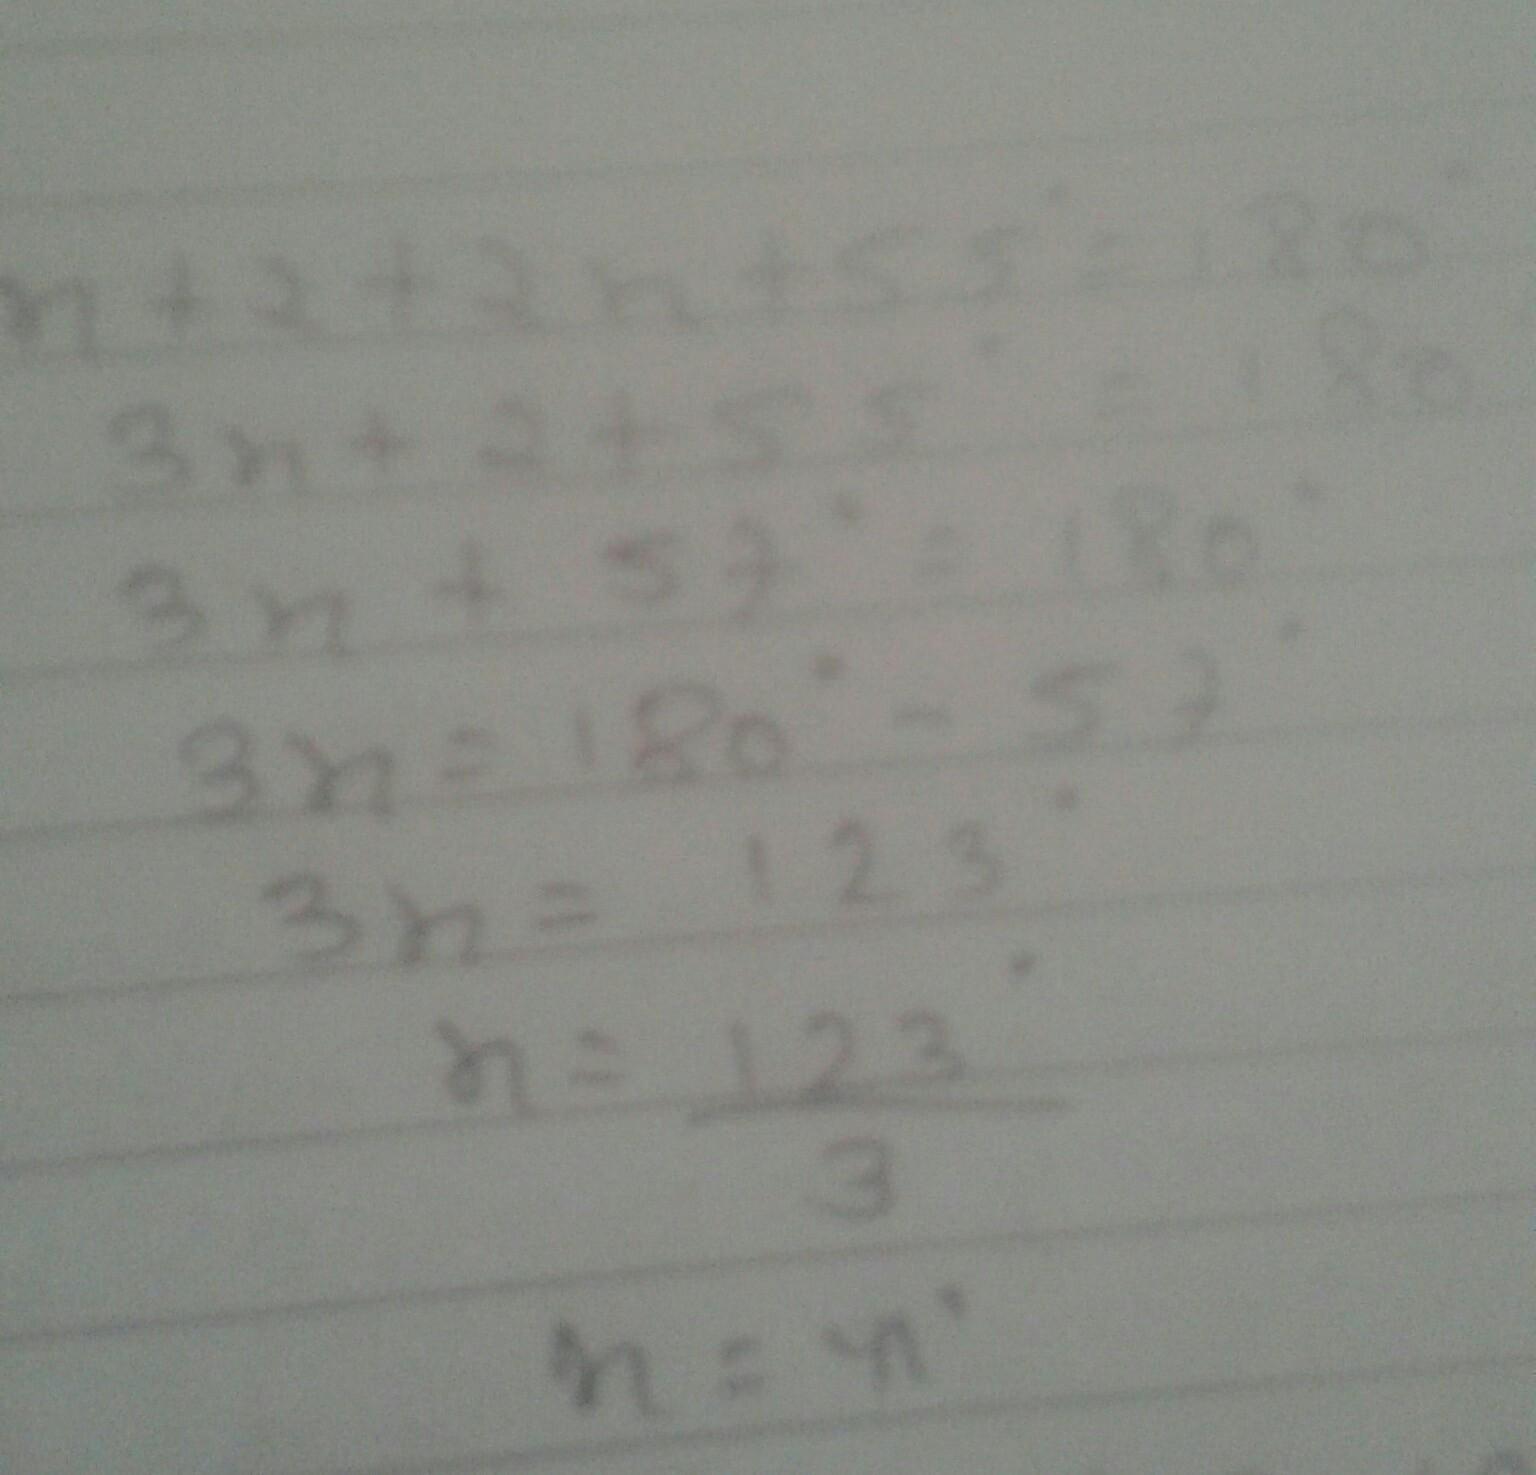 n + 2 + 2n + 55° = 180°
3n + 2 + 55° = 180
3n + 57° = 180°
3n = 180° - 57°
3n = 123°
n = 123°
3
n = 41°